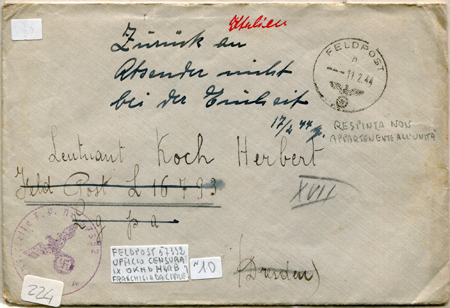 Italien
Zurück an
Absender nicht
bei der Einheit
17/2 44
FELDPOST
a
11.2.44
RESPINTA NON
APPARTENENTE ALL'UNITÀ
Leutnant Koch Herbert
Feld Post L 16793
Lgpa
XVII
FELDPOST 57392
UFFICIO CENSURA
N° 10
(Dresden)
224